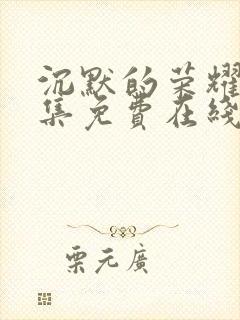 沉默的荣耀
集免费在线
栗元廣